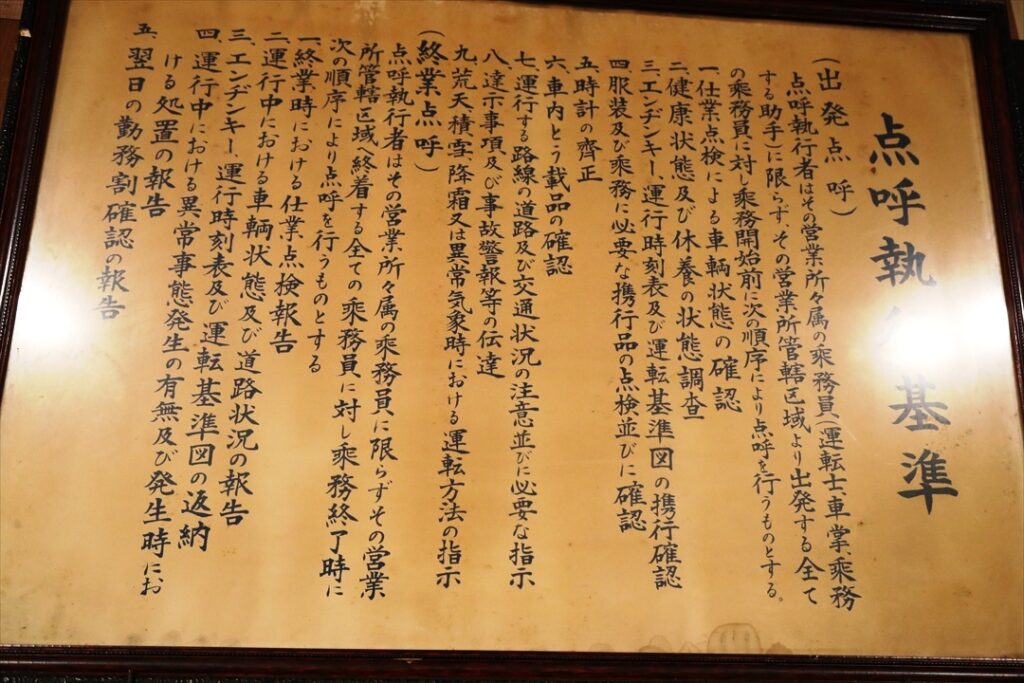 点呼執行基準
(出発点呼)
点呼執行者はその営業所々属の乗務員(運転士、車掌、乗務
する助手)に限らず、その営業所管轄区域より出発する全て
の乗務員に対し乗務開始前に次の順序により点呼を行うものとする。
一、仕業点検による車輌状態の確認
二、健康状態及び休養の状態調査
三、エンヂンキー、運行時刻表及び運転基準図の携行確認
四、服装及び乗務に必要な携行品の点検並びに確認
五、時計の齊正
六、車内とう載品の確認
七、運行する路線の道路及び交通状況の注意並びに必要な指示
八、達示事項及び事故警報等の伝達
九、荒天積雪、降霜又は異常気象時における運転方法の指示
(終業点呼)
点呼執行者はその営業所々属の乗務員に限らずその営業
所管轄区域へ終着する全ての乗務員に対し乗務終了時に
次の順序により点呼を行うものとする
一、終業時における仕業点検報告
二、運行中における車輌状態及び道路状況の報告
三、エンヂンキー、運行時刻表及び運転基準図の返納
四、運行中における異常事態発生の有無及び発生時にお
ける処置の報告
五、翌日の勤務割確認の報告